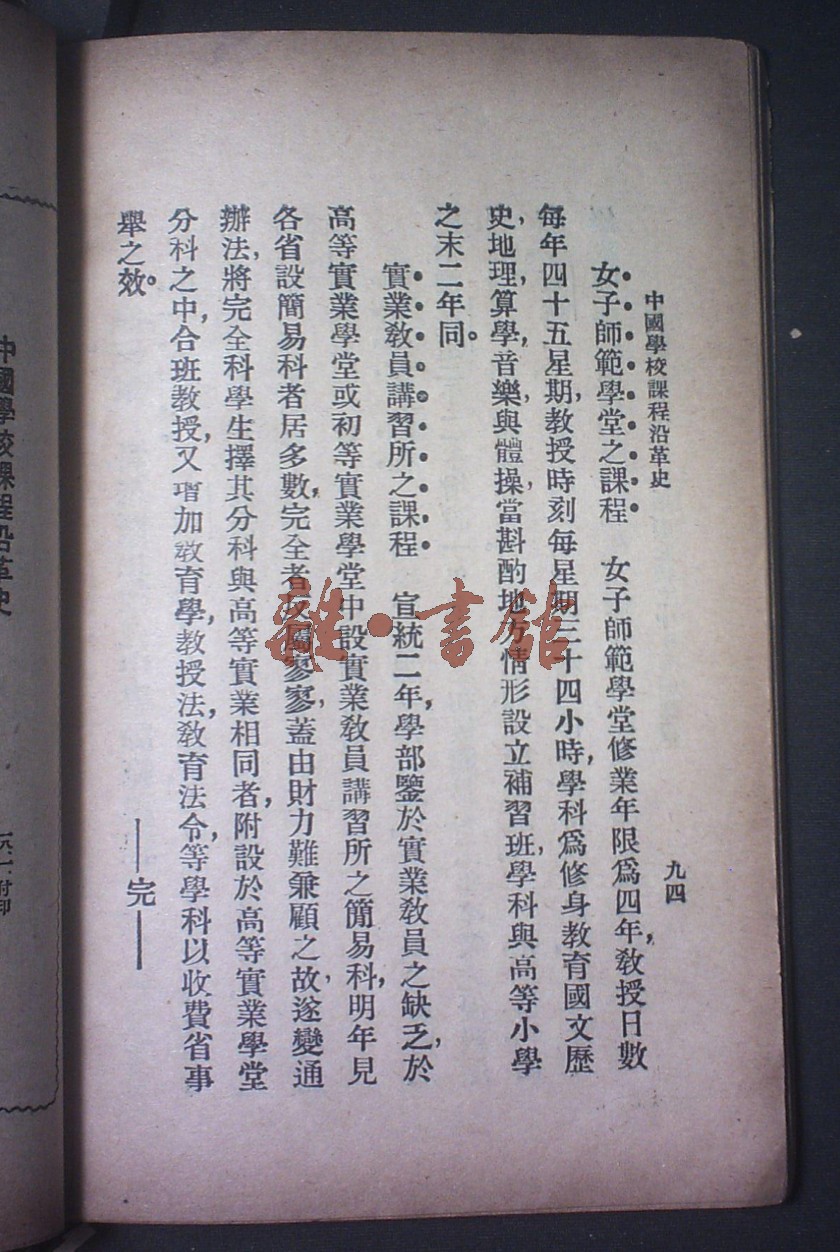 中國學校課程沿革史
九四
女子師範學堂之課程　女子師範學堂修業年限爲四年,教授日數
每年四十五星期,教授時刻每星期三十四小時,學科爲修身教育國文歷
史,地理,算學,音樂,與體操,當斟酌地方情形設立補習班,學科與高等小學
之末二年同。
實業教員講習所之課程　宣統二年,學部鑒於實業教員之缺乏,於
高等實業學堂或初等實業學堂中設實業教員講習所之簡易科,明年見
各省設簡易科者居多數,完全者反屬寥寥,蓋由財力難兼顧之故,遂變通
辦法,將完全科學生擇其分科與高等實業相同者,附設於高等實業學堂
分科之中,合班教授,又增加教育學,教授法,教育法令,等學科以收費省事
舉之效。
——完——
雜·書館
中國學校課程沿革史